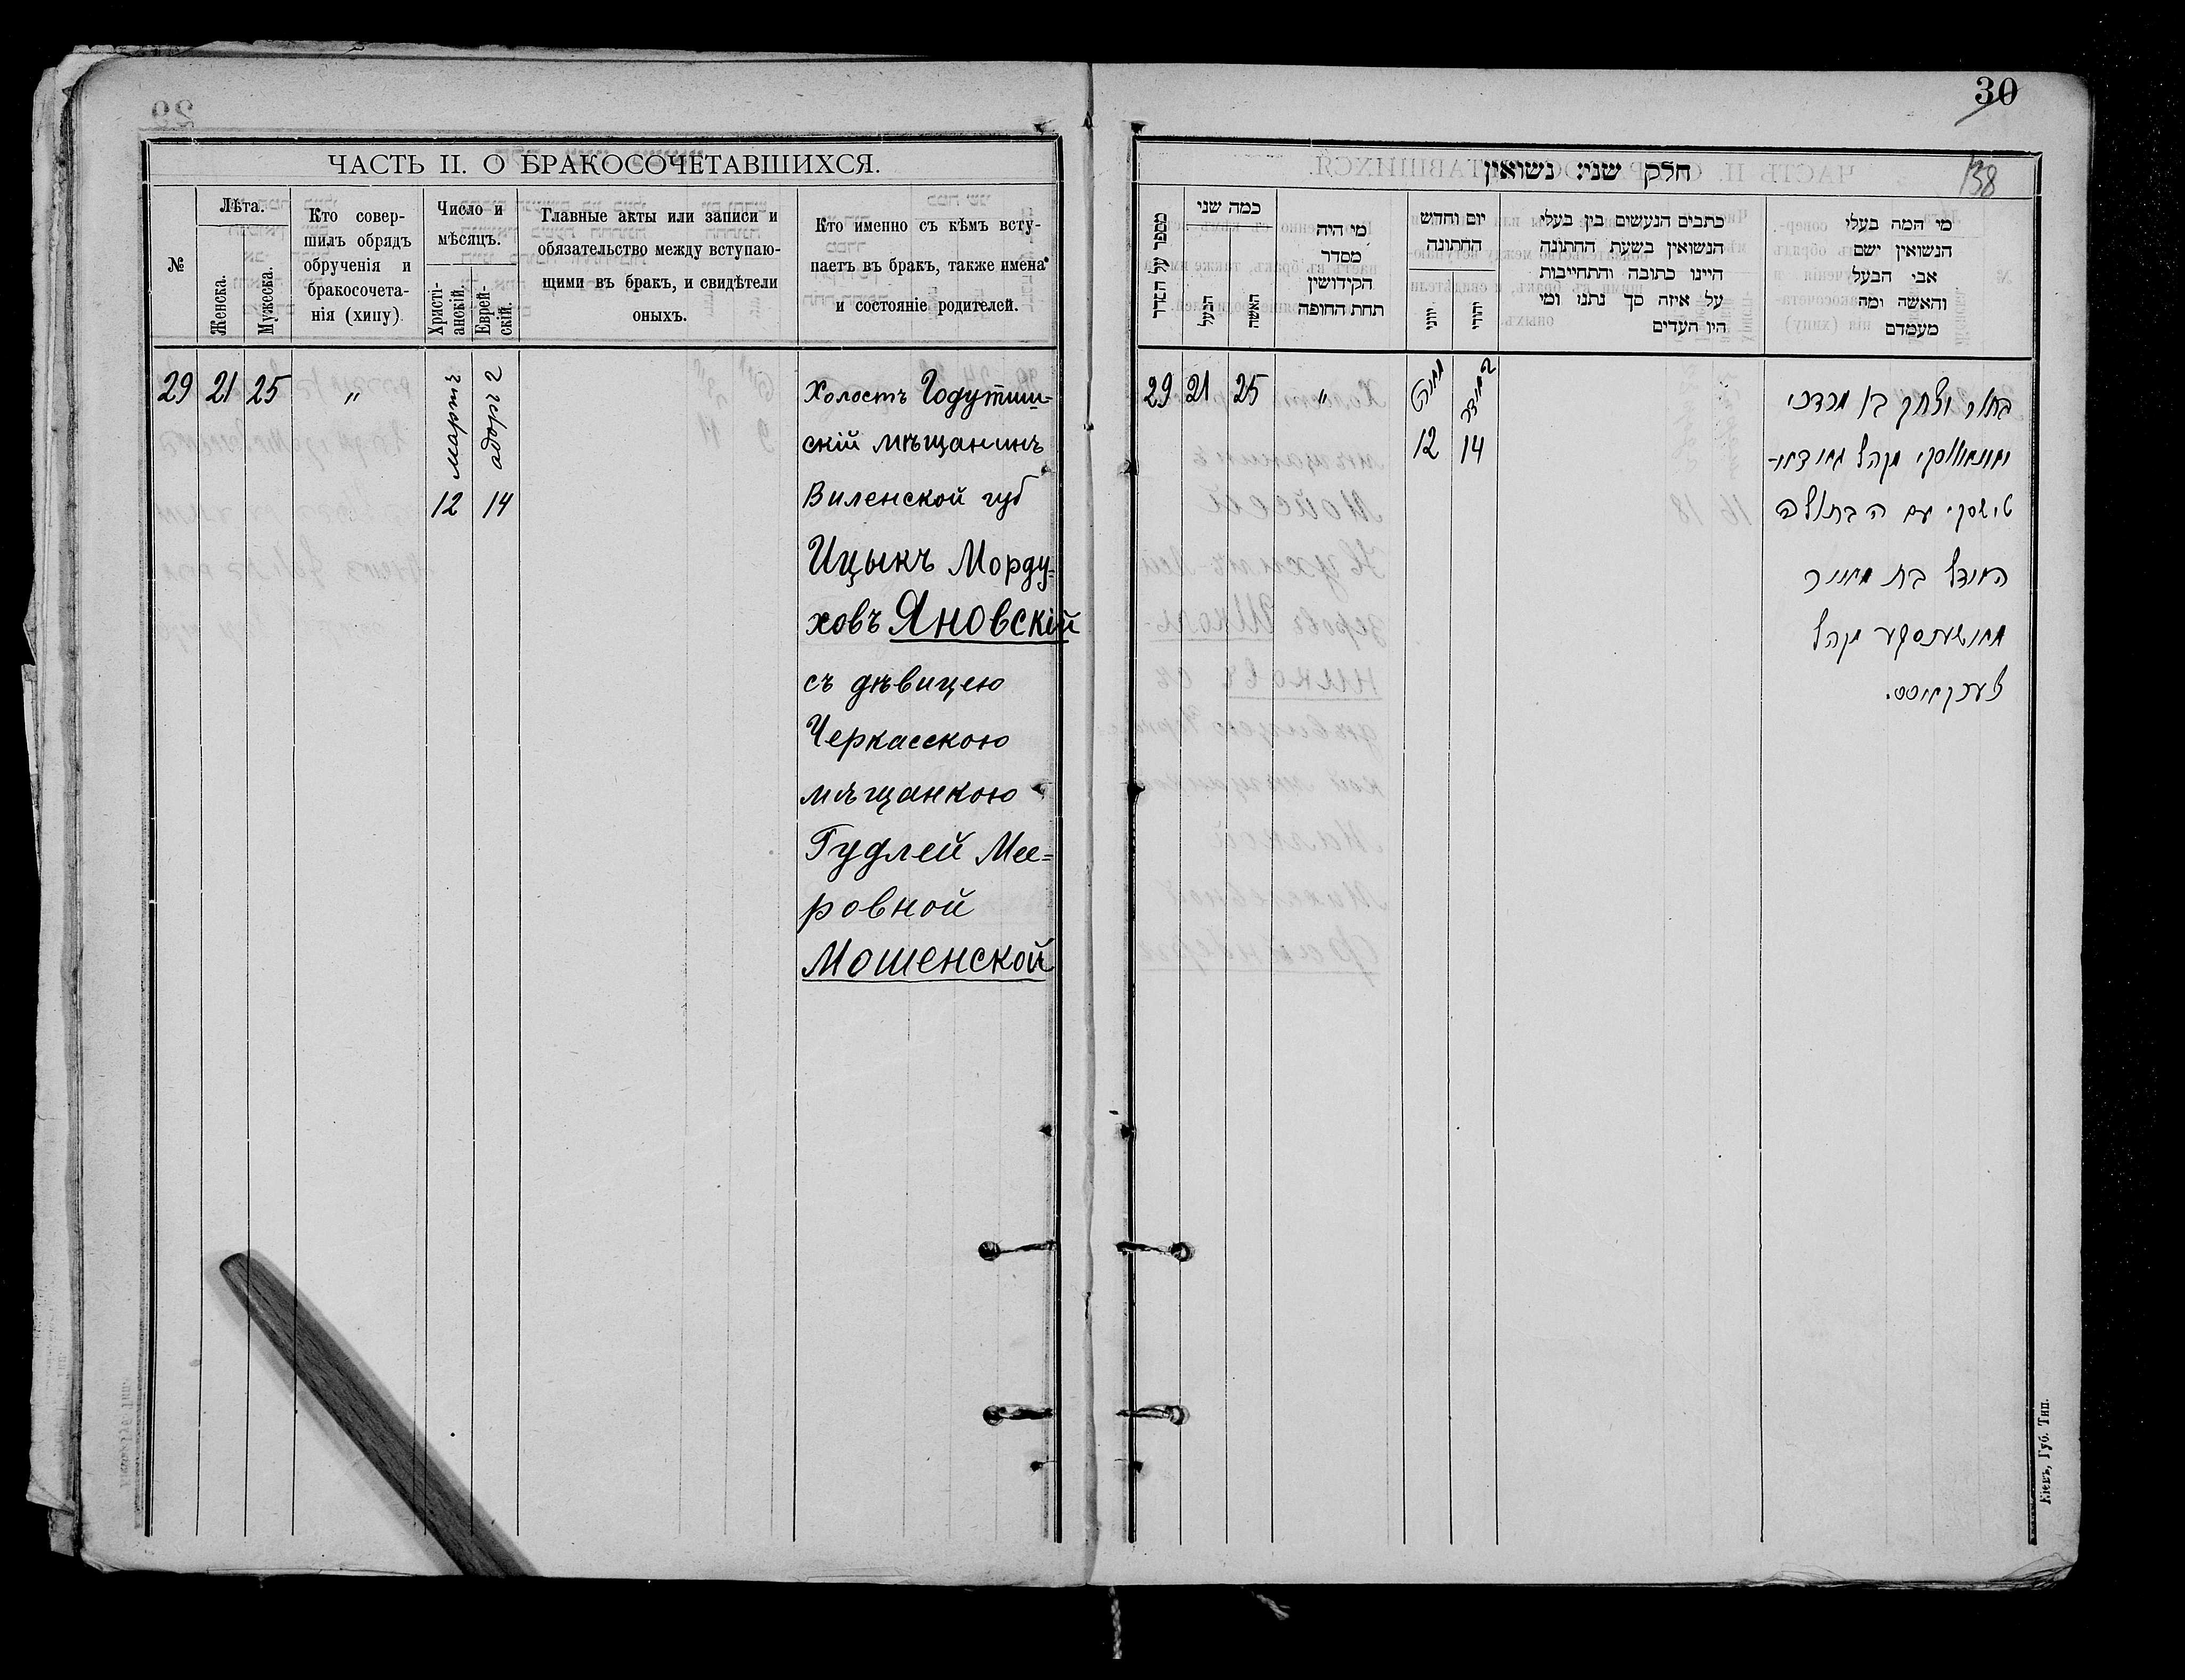 ЧАСТЬ II. О БРАКОСОЧЕТАВШИХСЯ.
№
Лѣта.
Женска.
Мужеска.
Кто совер-
шилъ обрядъ
обрученія и
бракосочета-
нія (хипу)
Число и
мѣсяцъ.
Христі-
анскій.
Еврей-
скій.
Главные акты или записи и
обязательство между вступаю-
щими въ бракъ, и свидѣтели
оныхъ.
Кто именно съ кѣмъ всту-
паетъ въ бракъ, также имена
и состояніе родителей.
29 21 25 "
мартъ
12
адоръ 2
14
Холостъ Годутиш-
скій мѣщанинъ
Виленской губ
Ицыкъ Морду-
ховъ Яновскій
съ дѣвицею
Черкасскою
мѣщанкою
Гудлей Мее=
ровной
Мошенской
30
138
חלק שני: נשואין
מספר על הסדר
כמה שני
הבעל
האשה
מי היה
מסדר
הקידושין
תחת החופה
יום וחדש
החתונה
יוני
יהודי
כתבים הנעשים בין בעלי
הנשואין בשעת החתונה
היינו כתובה והתחייבות
על איזה סך נתנו ומי
היו העדים
מי המה בעלי
הנשואין ושם
אבי הבעל
והאשה ומה
מעמדם
29 21 25 "
12 14
בחור יצחק בן מרדכי
יאנאווסקי מקהל
טישסקי עם הבתולה
הודל בת מאיר
מאשענסקע מקהל
Кіевъ, Губ. Тип.